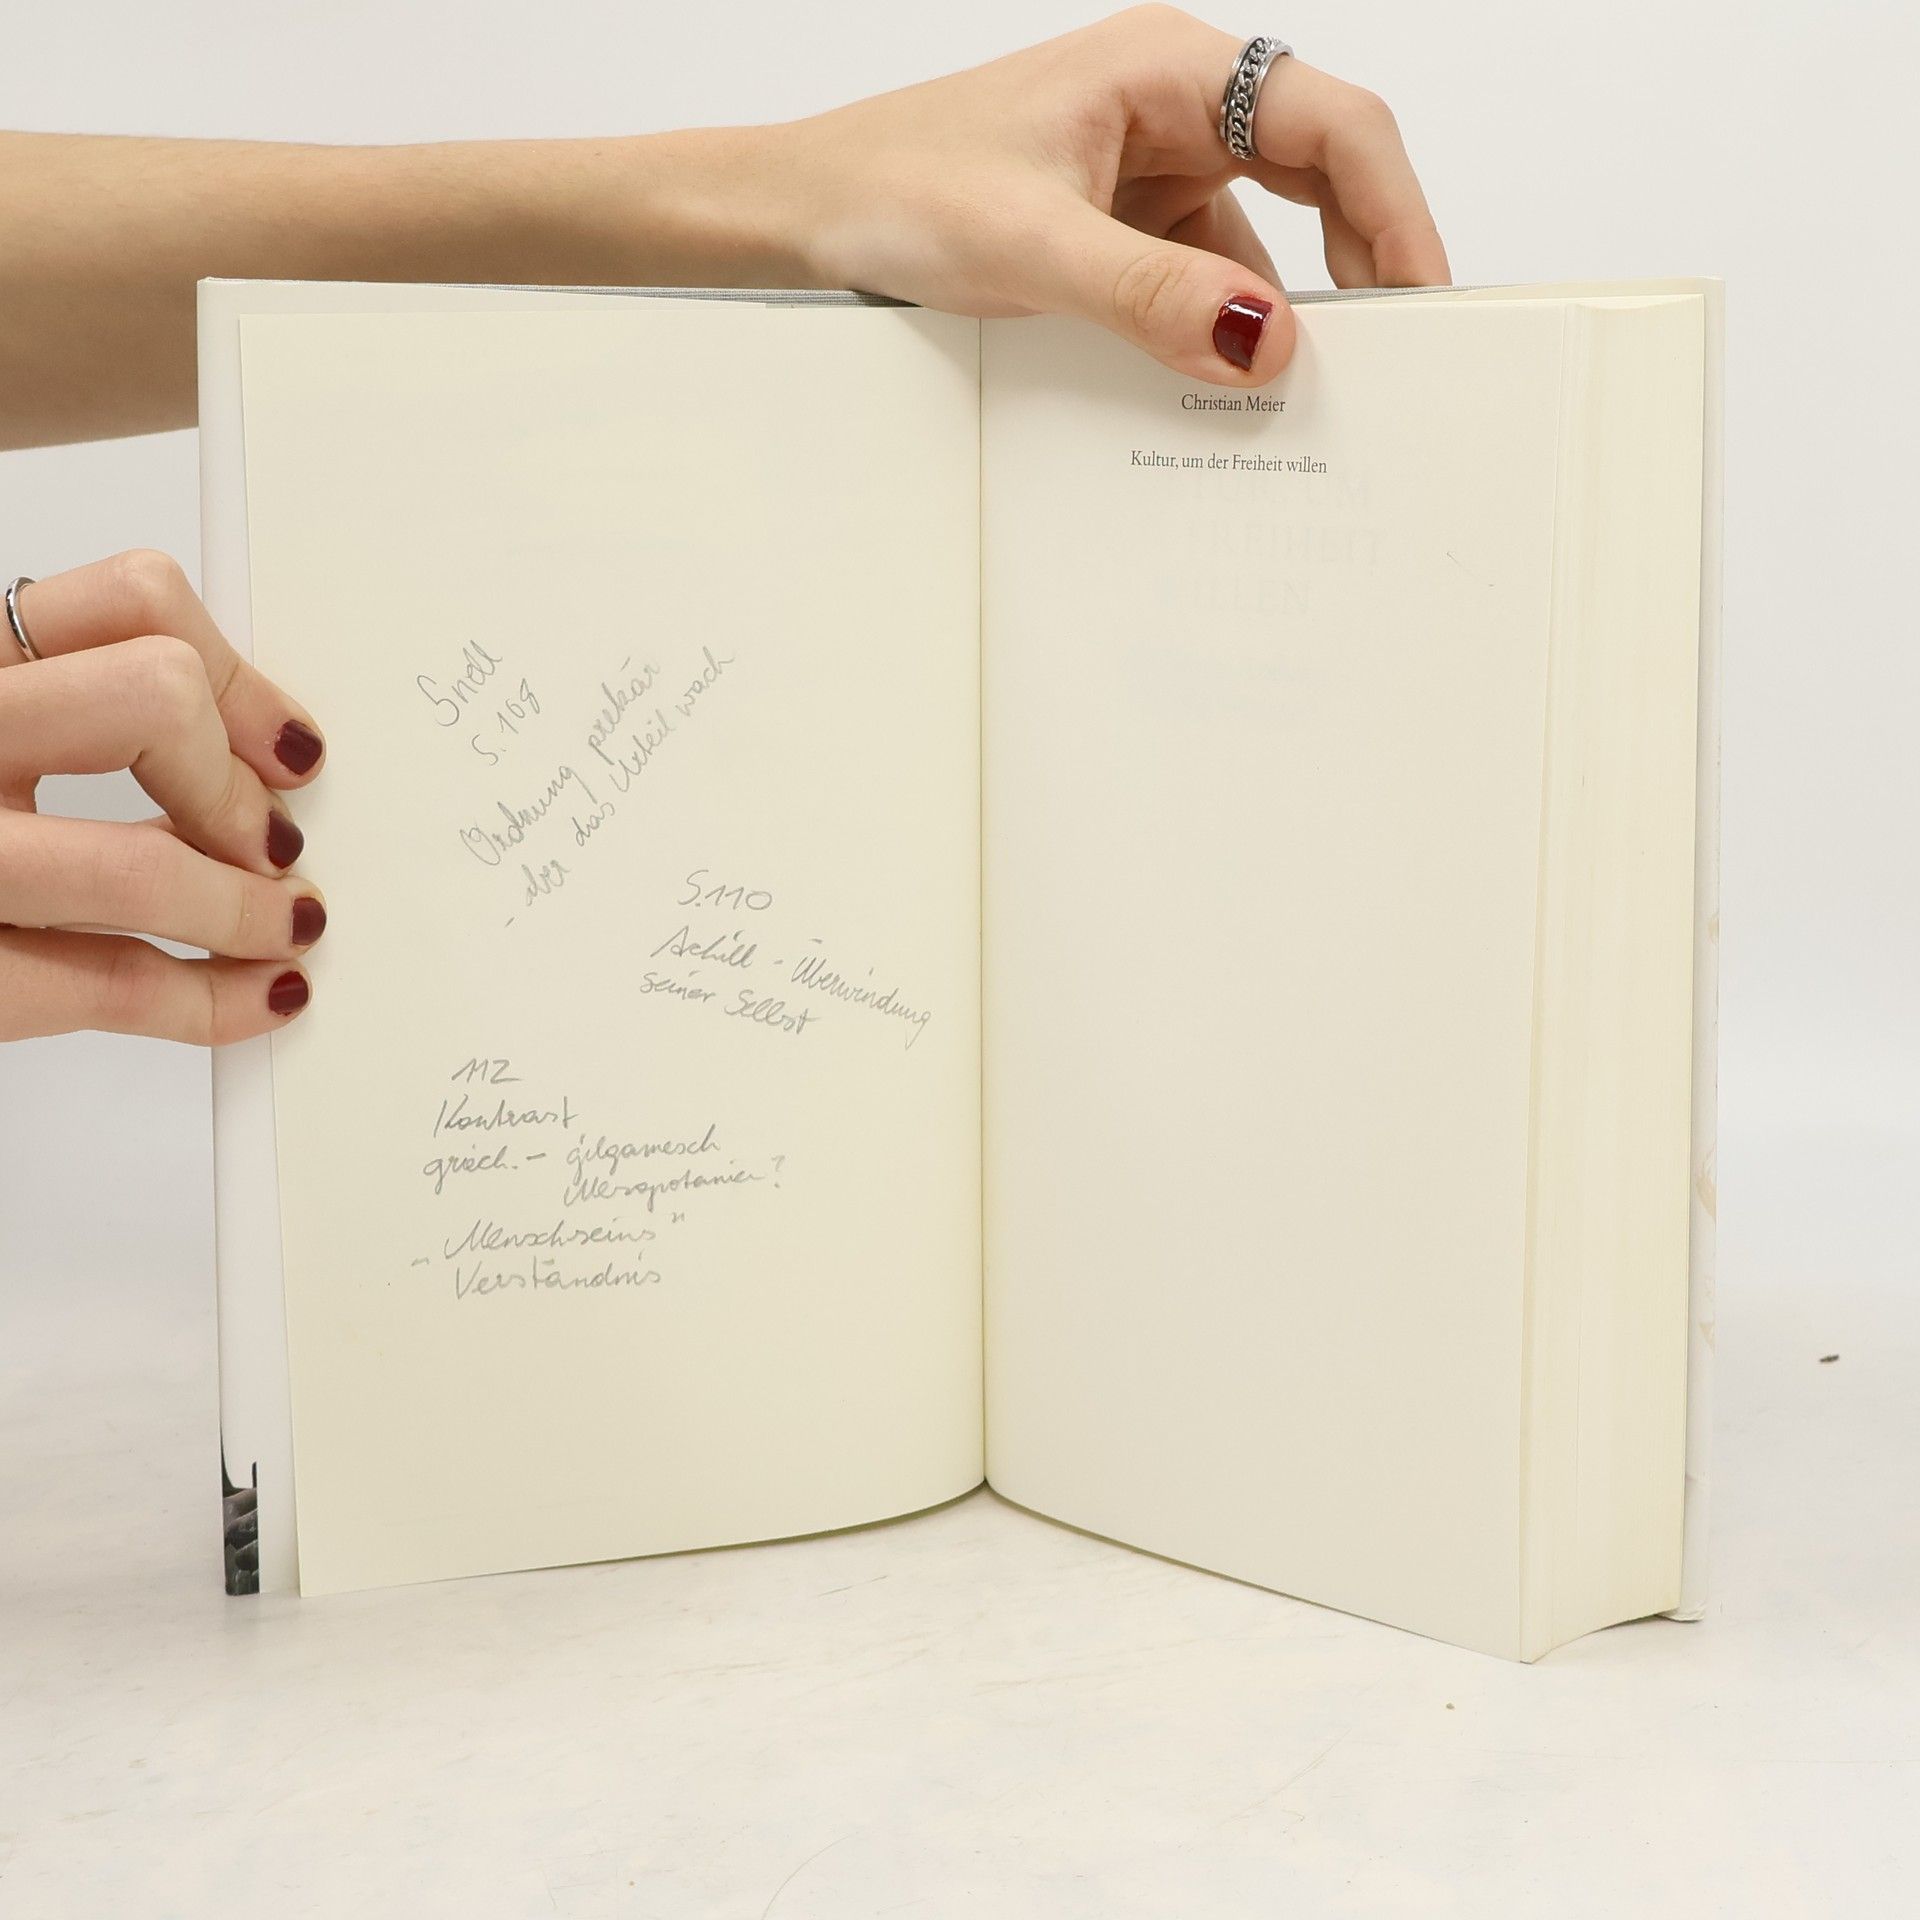 Snell
S. 108
Ordnung prekär
- aber das Urteil wach
S. 110
Achill - Überwindung
seiner Selbst
112
Kontrast
griech. - gilgamesch
Mesopotamien?
„Menschseins"
Verständnis
Christian Meier
Kultur, um der Freiheit willen